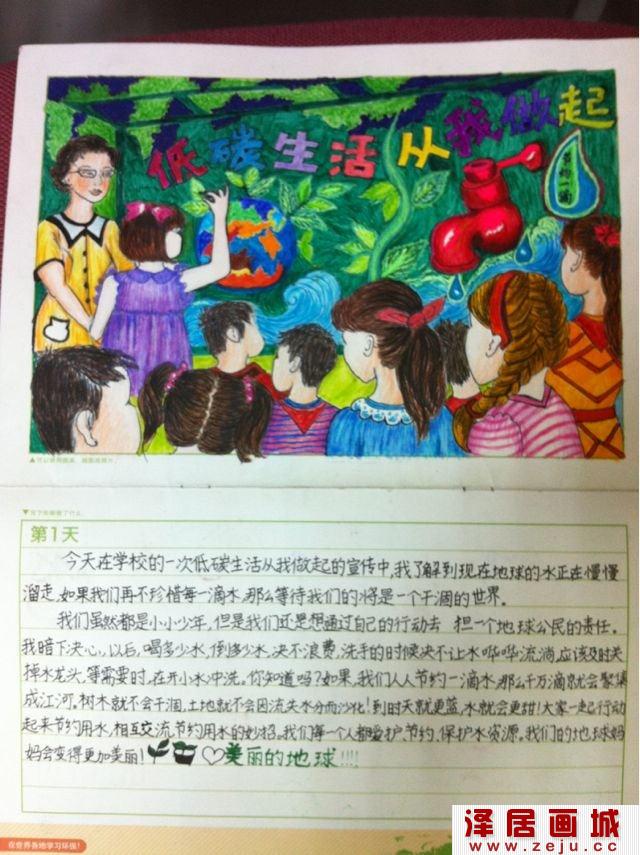 低碳生活从我做起
节约一滴
第1天
今天在学校的一次低碳生活从我做起的宣传中,我了解到现在地球的水正在慢慢
溜走.如果我们再不珍惜每一滴水.那么等待我们的将是一个干涸的世界。
我们虽然都是小小少年,但是我们还是想通过自己的行动去 担一个地球公民的责任.
我暗下决心,以后,喝多少水,倒多少水.决不浪费.洗手的时候决不让水哗哗流淌.应该及时关
掉水龙头.等需要时.在开小水冲洗.你知道吗?如果,我们人人节约一滴水.那么千万滴就会聚集
成江河.树木就不会干涸.土地就不会因流失水分而沙化!到时天就更蓝,水就会更甜!大家一起行动
起来节约用水,相互交流节约用水的妙招。我们每一个人都爱护节约.保护水资源.我们的地球妈
妈会变得更加美丽!美丽的地球!!!!
在世界各地学习环保!
泽居画城
www.zeju.cc